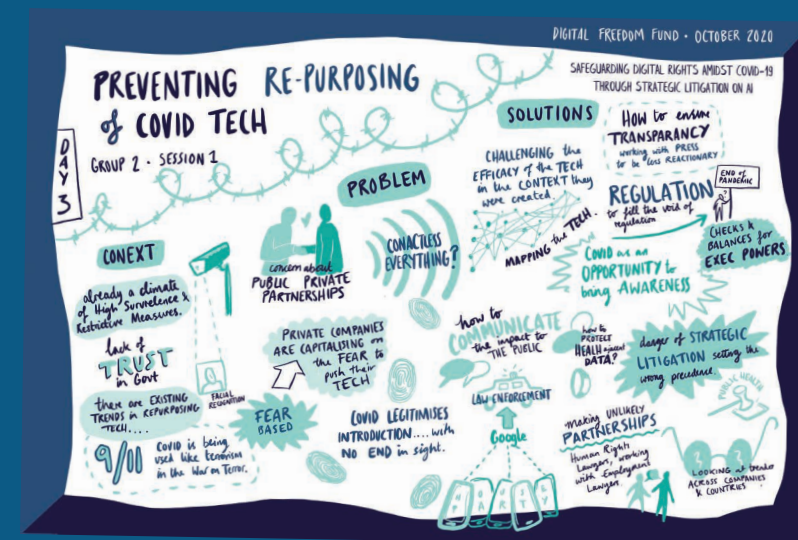 DIGITAL FREEDOM FUND • OCTOBER 2020
SAFEGUARDING DIGITAL RIGHTS AMIDST COVID-19
THROUGH STRATEGIC LITIGATION ON AI
PREVENTING RE-PURPOSING
of COVID TECH
GROUP 2 • SESSION 1
DAY 3
CONEXT
already a climate
of High Survelence &
Restrictive Measures.
lack of
TRUST
in Govt
there are EXISTING
TRENDS in REPURPOSING
TECH....
9/11
COVID is being
used like terrorism
in the War on Terror.
FACIAL
RECOGNITION
PROBLEM
concern about
PUBLIC PRIVATE
PARTNERSHIPS
CONACTLESS
EVERYTHING?
PRIVATE COMPANIES
ARE CAPITALISING on
the FEAR to
push their
TECH
FEAR
BASED
COVID LEGITIMISES
INTRODUCTION....with
NO END in sight.
SOLUTIONS
CHALLENGING the
EFFICACY of the TECH
in the CONTEXT they
were created.
MAPPING the TECH.
HOW to ensure
TRANSPARANCY
working with PRESS
to be less REACTIONARY
REGULATION
to fill the void of
regulation
END of
PANDEMIC
CHECKS &
BALANCES for
EXEC POWERS
COVID as an
OPPORTUNITY to
bring AWARENESS
how to
COMMUNICATE
the impact to
THE PUBLIC
how to
PROTECT
HEALH
DATA?
danger of STRATEGIC
LITIGATION setting the
wrong precedence.
PUBLIC HEALTH
LAW ENFORCEMENT
Google
3RD PARTY
Making UNLIKELY
PARTNERSHIPS
Human Rights
Lawyers, working
with Employment
Lawyers.
LOOKING at trends
ACROSS COMPANIES
& COUNTRIES